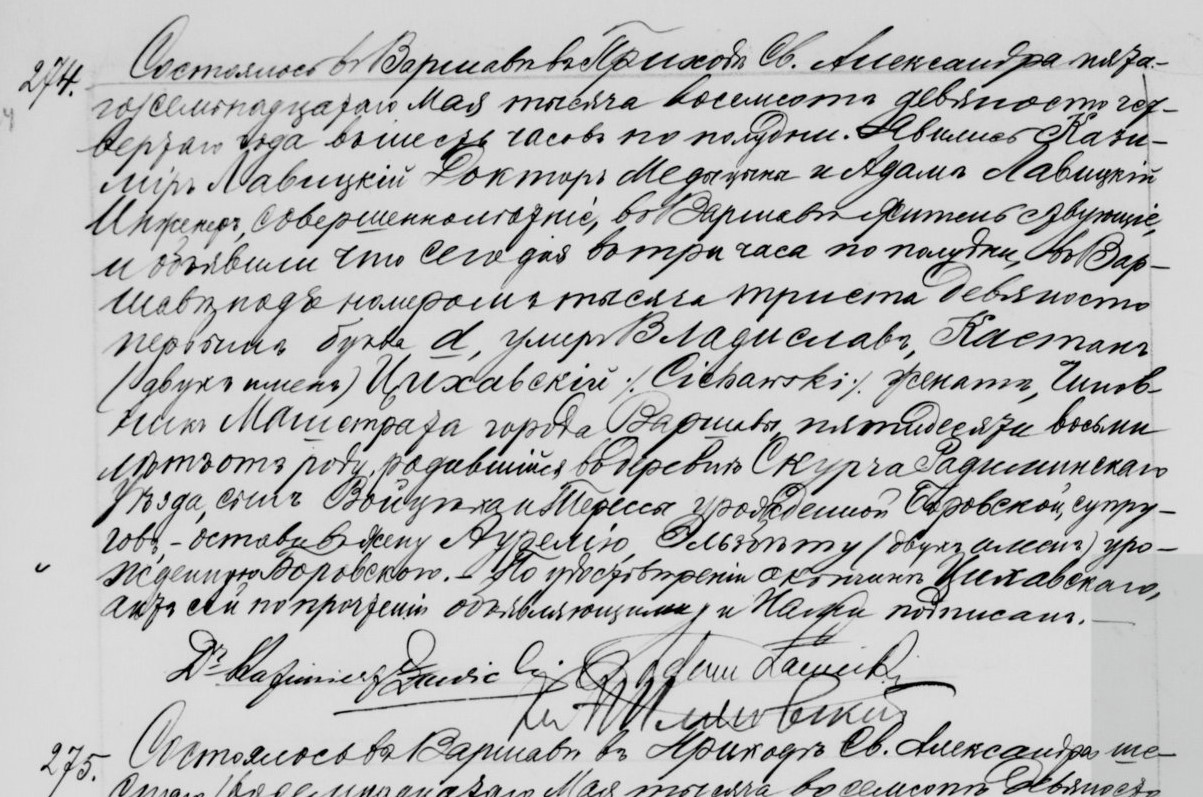 274. Состоялось въ Варшавѣ въ Приходѣ Св. Александра пята-
го/семнадцатаго Мая тысяча восемсотъ девяносто чет-
вертаго года въ шесть часовъ по полудни. Явились Кази-
міръ Лавицкій Докторъ Медыцыны и Адамъ Лавицкій
Инженеръ, совершеннолѣтніе, въ Варшавѣ жительствующіе,
и объявили что сего дня въ три часа по полудни, въ Вар-
шавѣ подъ номеромъ тысяча триста девяносто
первымъ буква d, умеръ Владиславъ, Каетанъ
(двухъ именъ) Цихавскій /. Cichawski ./. женатъ, Чинов-
никъ Магистрата города Варшавы, пятидесяти восьми
лѣтъ отъ роду, родившійся въ деревнѣ Скурча Радиминскаго
уѣзда, сынъ Войцѣха и Терессы урожденной Боровской, супру-
говъ, - оставивъ жену Аурелію, Эльжбѣту (двухъ именъ) уро-
жденную Боровскою. - По удостовѣреніи о кончинѣ Цихавскаго,
актъ сей по прочтеніи объявляющимъ и Нами подписанъ. -
Dr Kazimierz Adam Ławicki
275. Состоялось въ Варшавѣ въ Приходѣ Св. Александра ше-
стаго/восемнадцатаго Мая тысяча восемсотъ девяносто